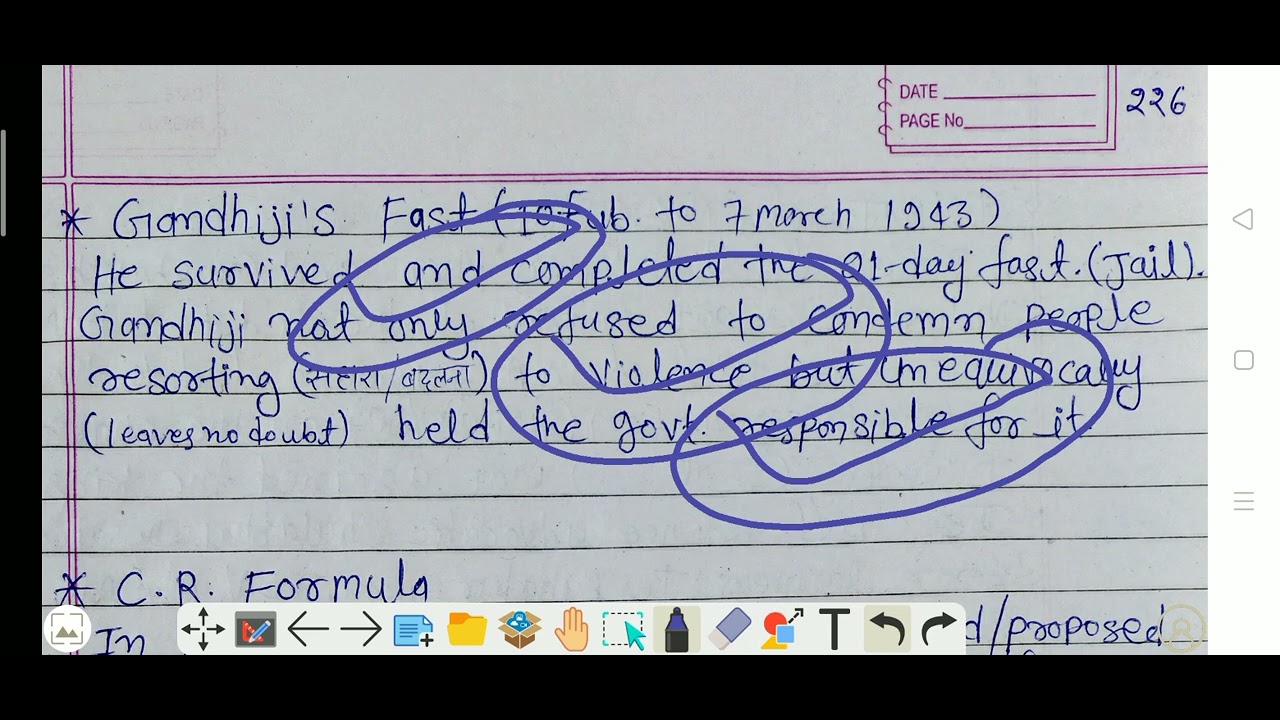 DATE
PAGE No
226
* Gandhiji's Fast (10 Feb. to 7 march 1943)
He survived and completed the 21-day fast. (Jail).
Gandhiji not only refused to condemn people
resorting (सहारा/बदलना) to violence but unequivocally
(leaves no doubt) held the govt. responsible for it
* C.R. Formula
In d/proposed
T